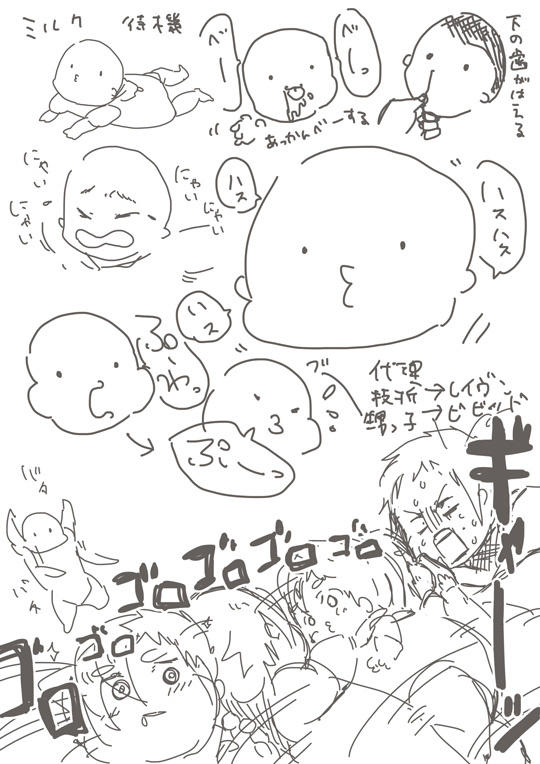 ミルク 待機
ベー
べーっ
あっかんべーする
下の歯がはえる
にゃい
にゃい
にゃい
にゃい
ハス
ハスハス
ハス
ぷーわっ
ブー
ぷーっ
代理
枝折→レイヴン
甥っ子→ビビッド
バタ
バタ
ゴロゴロゴロゴロ
ゴロ
ゴロ
ぎゃーっ